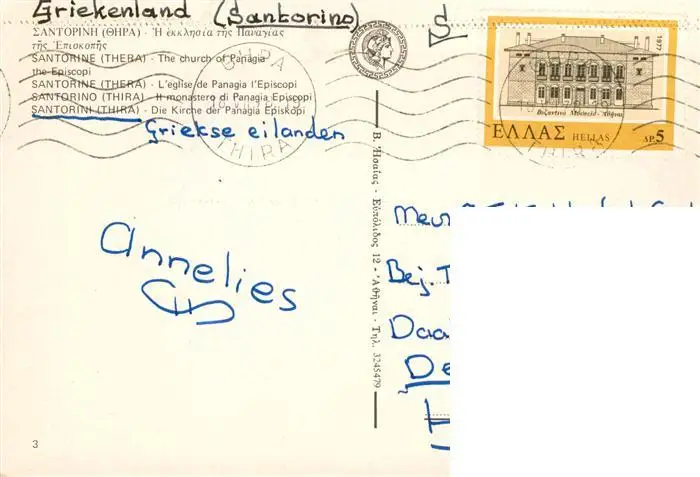 Griekenland (Santorino)
S
ΣΑΝΤΟΡΙΝΗ (ΘΗΡΑ) - Ἡ ἐκκλησία τῆς Παναγίας
τῆς Ἐπισκοπῆς
SANTORINE (THERA) - The church of Panagia
the Episcopi
SANTORINE (THERA) - L'eglise de Panagia l'Episcopi
SANTORINO (THIRA) - Il monastero di Panagia Episcopi
SANTORINI (THIRA) - Die Kirche der Panagia Episkopi
Griekse eilanden
ΘΗΡΑ
THIRA
1977
Βυζαντινό Μουσεῖο - Ἀθῆναι
ΕΛΛΑΣ HELLAS ΔΡ.5
THIRA
Annelies
Β. Ἡσαΐας - Εὐπόλιδος 12 - Ἀθῆναι - Τηλ. 3245479
Bej. T
Daa
De
3